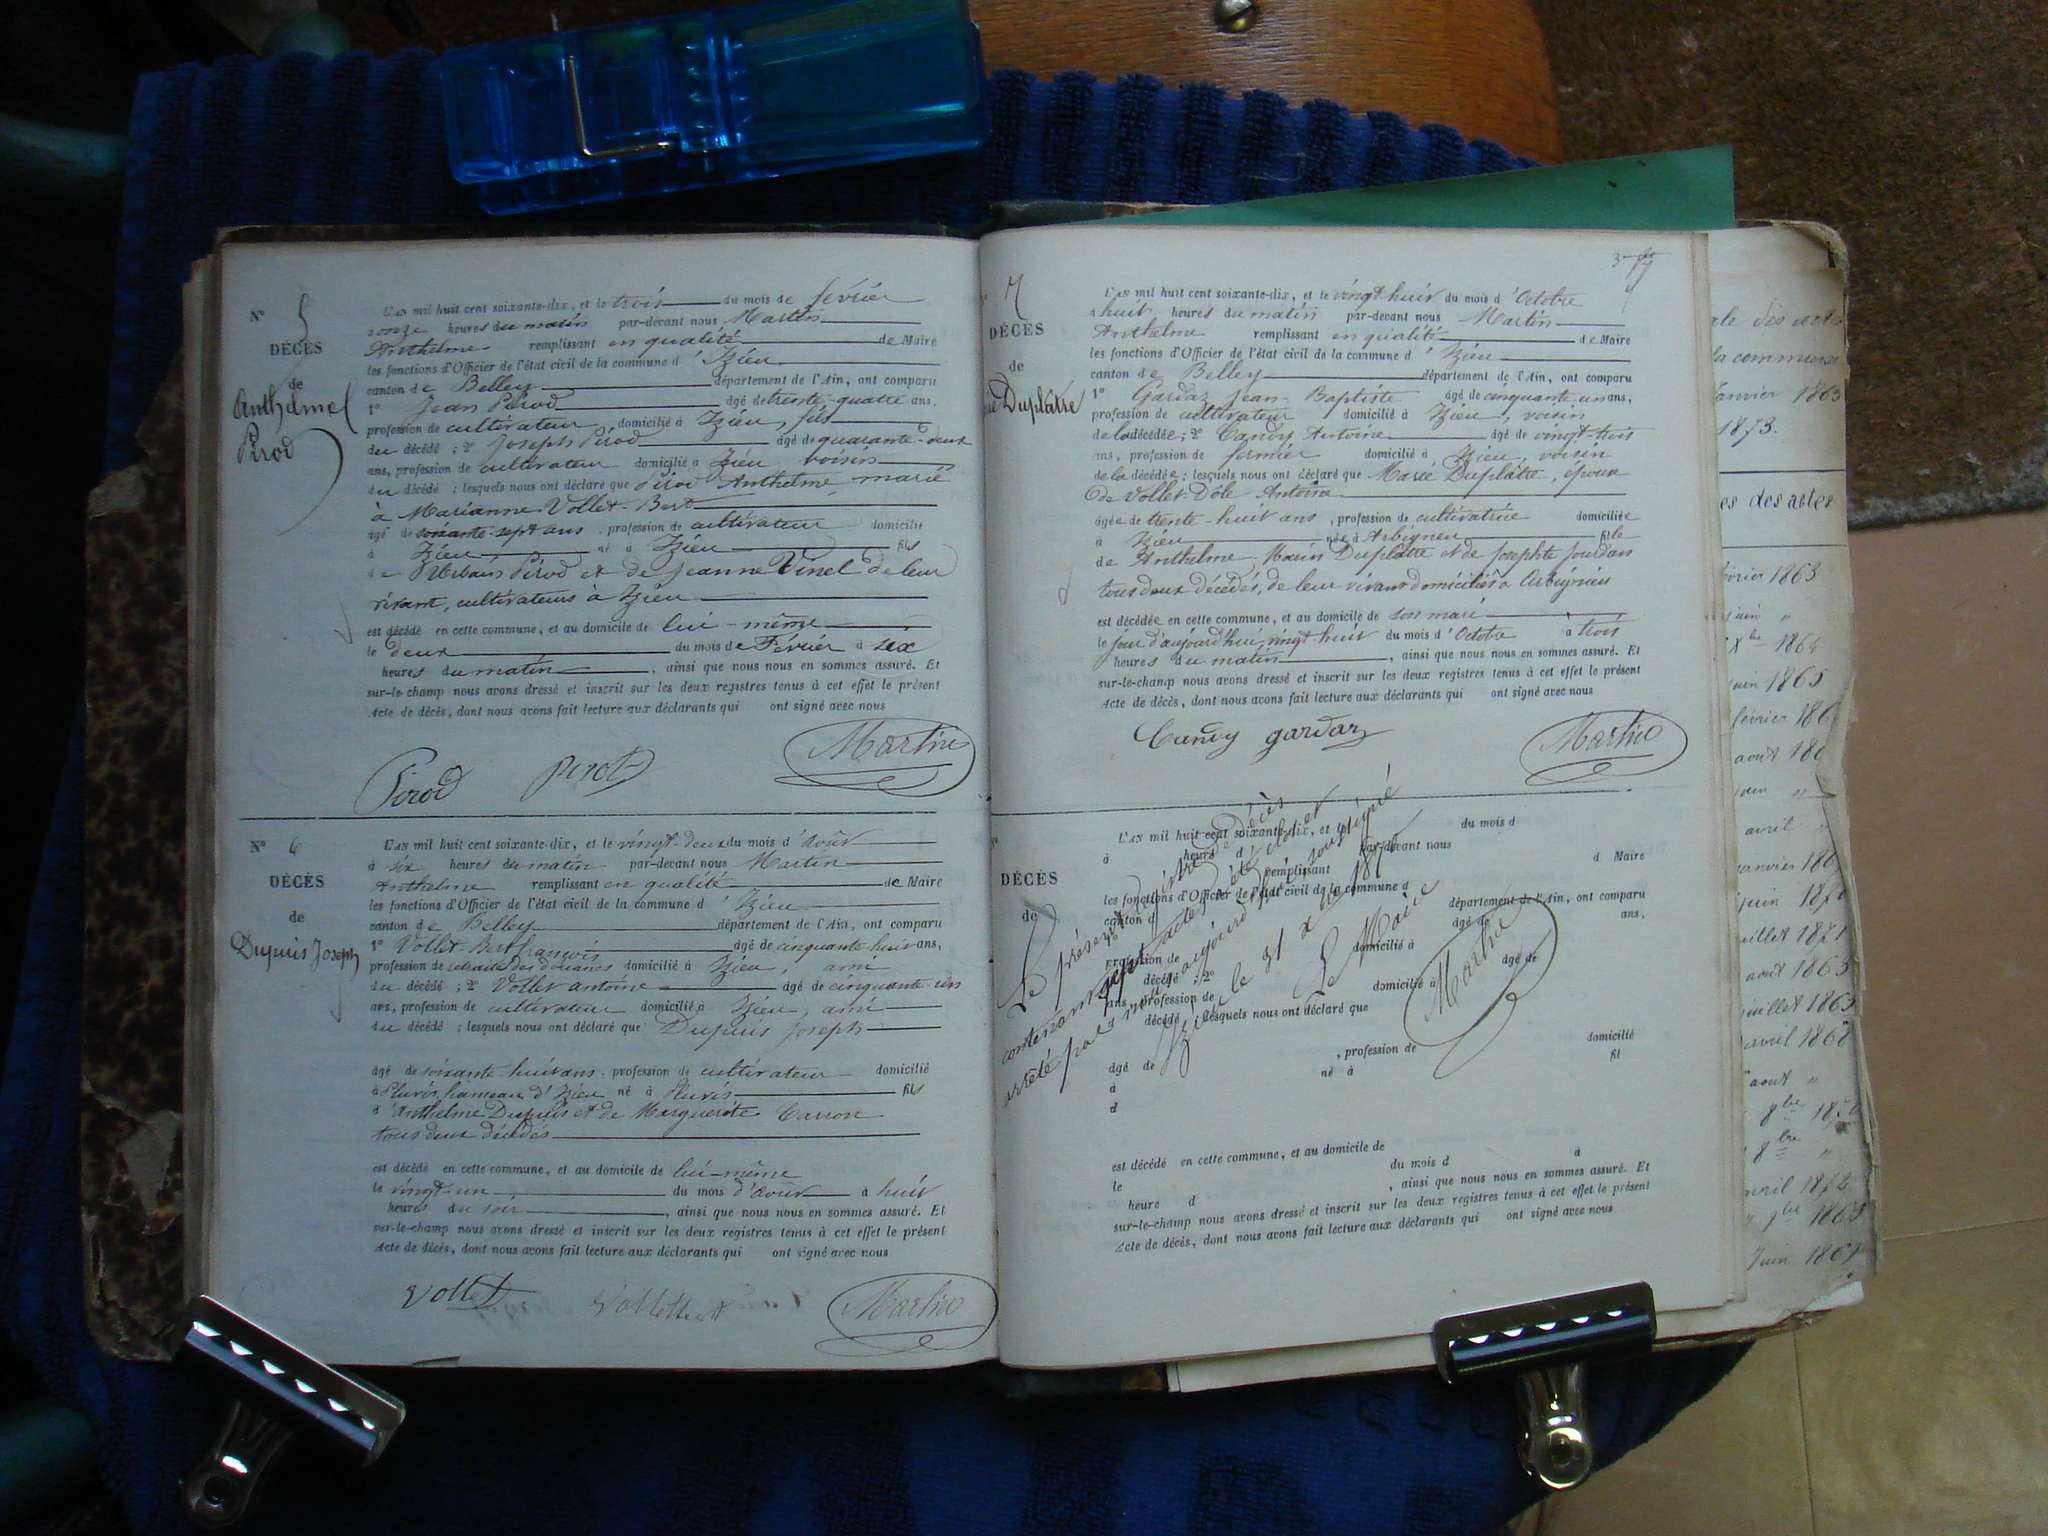 Nº 5
DÉCÈS
de
Anthelme
Pirod
L'AN mil huit cent soixante-dix, et le trois du mois de février
à onze heures du matin par-devant nous Martin
Anthelme remplissant en qualité de Maire
les fonctions d'Officier de l'état civil de la commune d' Izieu
canton de Belley département de l'Ain, ont comparu
1º Jean Pirod âgé de trente-quatre ans,
profession de cultivateur domicilié à Izieu, fils
du décédé ; 2º Joseph Pirod âgé de quarante-deux
ans, profession de cultivateur domicilié à Izieu voisin
du décédé ; lesquels nous ont déclaré que Pirod Anthelme, marié
à Marianne Vollet-Bert
âgé de soixante-sept ans, profession de cultivateur domicilié
à Izieu, né à Izieu fils
de Urbain Pirod et de Jeanne Vinel de leur
vivant, cultivateurs à Izieu
est décédé en cette commune, et au domicile de lui-même
le deux du mois de Février à six
heures du matin, ainsi que nous nous en sommes assuré. Et
sur-le-champ nous avons dressé et inscrit sur les deux registres tenus à cet effet le présent
Acte de décès, dont nous avons fait lecture aux déclarants qui ont signé avec nous
Pirod Pirod Martin
Nº 6
DÉCÈS
de
Dupuis Joseph
L'AN mil huit cent soixante-dix, et le vingt-deux du mois d'août
à six heures du matin par-devant nous Martin
Anthelme remplissant en qualité de Maire
les fonctions d'Officier de l'état civil de la commune d' Izieu
canton de Belley département de l'Ain, ont comparu
1º Vollet-Bert françois âgé de cinquante huit ans,
profession de retraité des douanes domicilié à Izieu, ami
du décédé ; 2º Vollet antoine âgé de cinquante-un
ans, profession de cultivateur domicilié à Izieu, ami
du décédé ; lesquels nous ont déclaré que Dupuis Joseph
âgé de soixante huit ans, profession de cultivateur domicilié
à Pluvis, hameau d'Izieu né à Pluvis fils
d'Anthelme Dupuis et de Marguerite Carron
tous deux décédés
est décédé en cette commune, et au domicile de lui-même
le vingt-un du mois d'août à huit
heures du soir, ainsi que nous nous en sommes assuré. Et
sur-le-champ nous avons dressé et inscrit sur les deux registres tenus à cet effet le présent
Acte de décès, dont nous avons fait lecture aux déclarants qui ont signé avec nous
Vollet Martin
7
DÉCÈS
de
Duplâtre
L'AN mil huit cent soixante-dix, et le vingt huit du mois d'Octobre
à huit heures du matin par-devant nous Martin
Anthelme remplissant en qualité de Maire
les fonctions d'Officier de l'état civil de la commune d' Izieu
canton de Belley département de l'Ain, ont comparu
1º Gardaz Jean-Baptiste âgé de cinquante un ans,
profession de cultivateur domicilié à Izieu, voisin
de la décédée ; 2º Candy Antoine âgé de vingt-trois
ans, profession de fermier domicilié à Izieu, voisin
de la décédée ; lesquels nous ont déclaré que Marie Duplâtre, épouse
de Vollet-Dôle Antoine
âgée de trente-huit ans, profession de cultivatrice domiciliée
à Izieu née à Arbignieu fille
de Anthelme Marin Duplâtre et de Josephte Jourdan
tous deux décédés, de leur vivant domiciliés à Arbignieu
est décédée en cette commune, et au domicile de son mari
le jour d'aujourd'hui, vingt huit du mois d'Octobre à trois
heures du matin, ainsi que nous nous en sommes assuré. Et
sur-le-champ nous avons dressé et inscrit sur les deux registres tenus à cet effet le présent
Acte de décès, dont nous avons fait lecture aux déclarants qui ont signé avec nous
Candy gardaz Martin
DÉCÈS
de
L'AN mil huit cent soixante-dix, et le du mois d
à heure d par-devant nous
remplissant d Maire
les fonctions d'Officier de l'état civil de la commune d
canton d département de l'Ain, ont comparu
1º âgé de ans,
profession de domicilié à
décédé ; 2º âgé de
ans, profession de domicilié à
décédé ; lesquels nous ont déclaré que
âgé de , profession de domicilié
à né à fil
d
est décédé en cette commune, et au domicile de
le du mois d à
heure d , ainsi que nous nous en sommes assuré. Et
sur-le-champ nous avons dressé et inscrit sur les deux registres tenus à cet effet le présent
Acte de décès, dont nous avons fait lecture aux déclarants qui ont signé avec nous
Le présent registre de décès
contenant sept actes a été clos et
arrêté par nous aujourd'hui soussigné
Izieu le 31 Xbre 1870
Le Maire
Martin
ale des actes
la commune
Janvier 1863
1873.
es des actes
février 1863
juin "
Xbre 1864
juin 1865
février 186
août 186
juin "
avril "
janvier 186
juin 187
juillet 1871
août 1863
juillet 1863
avril 1868
août "
8bre 1870
9bre "
avril 1872
9bre 1863
Juin 1861